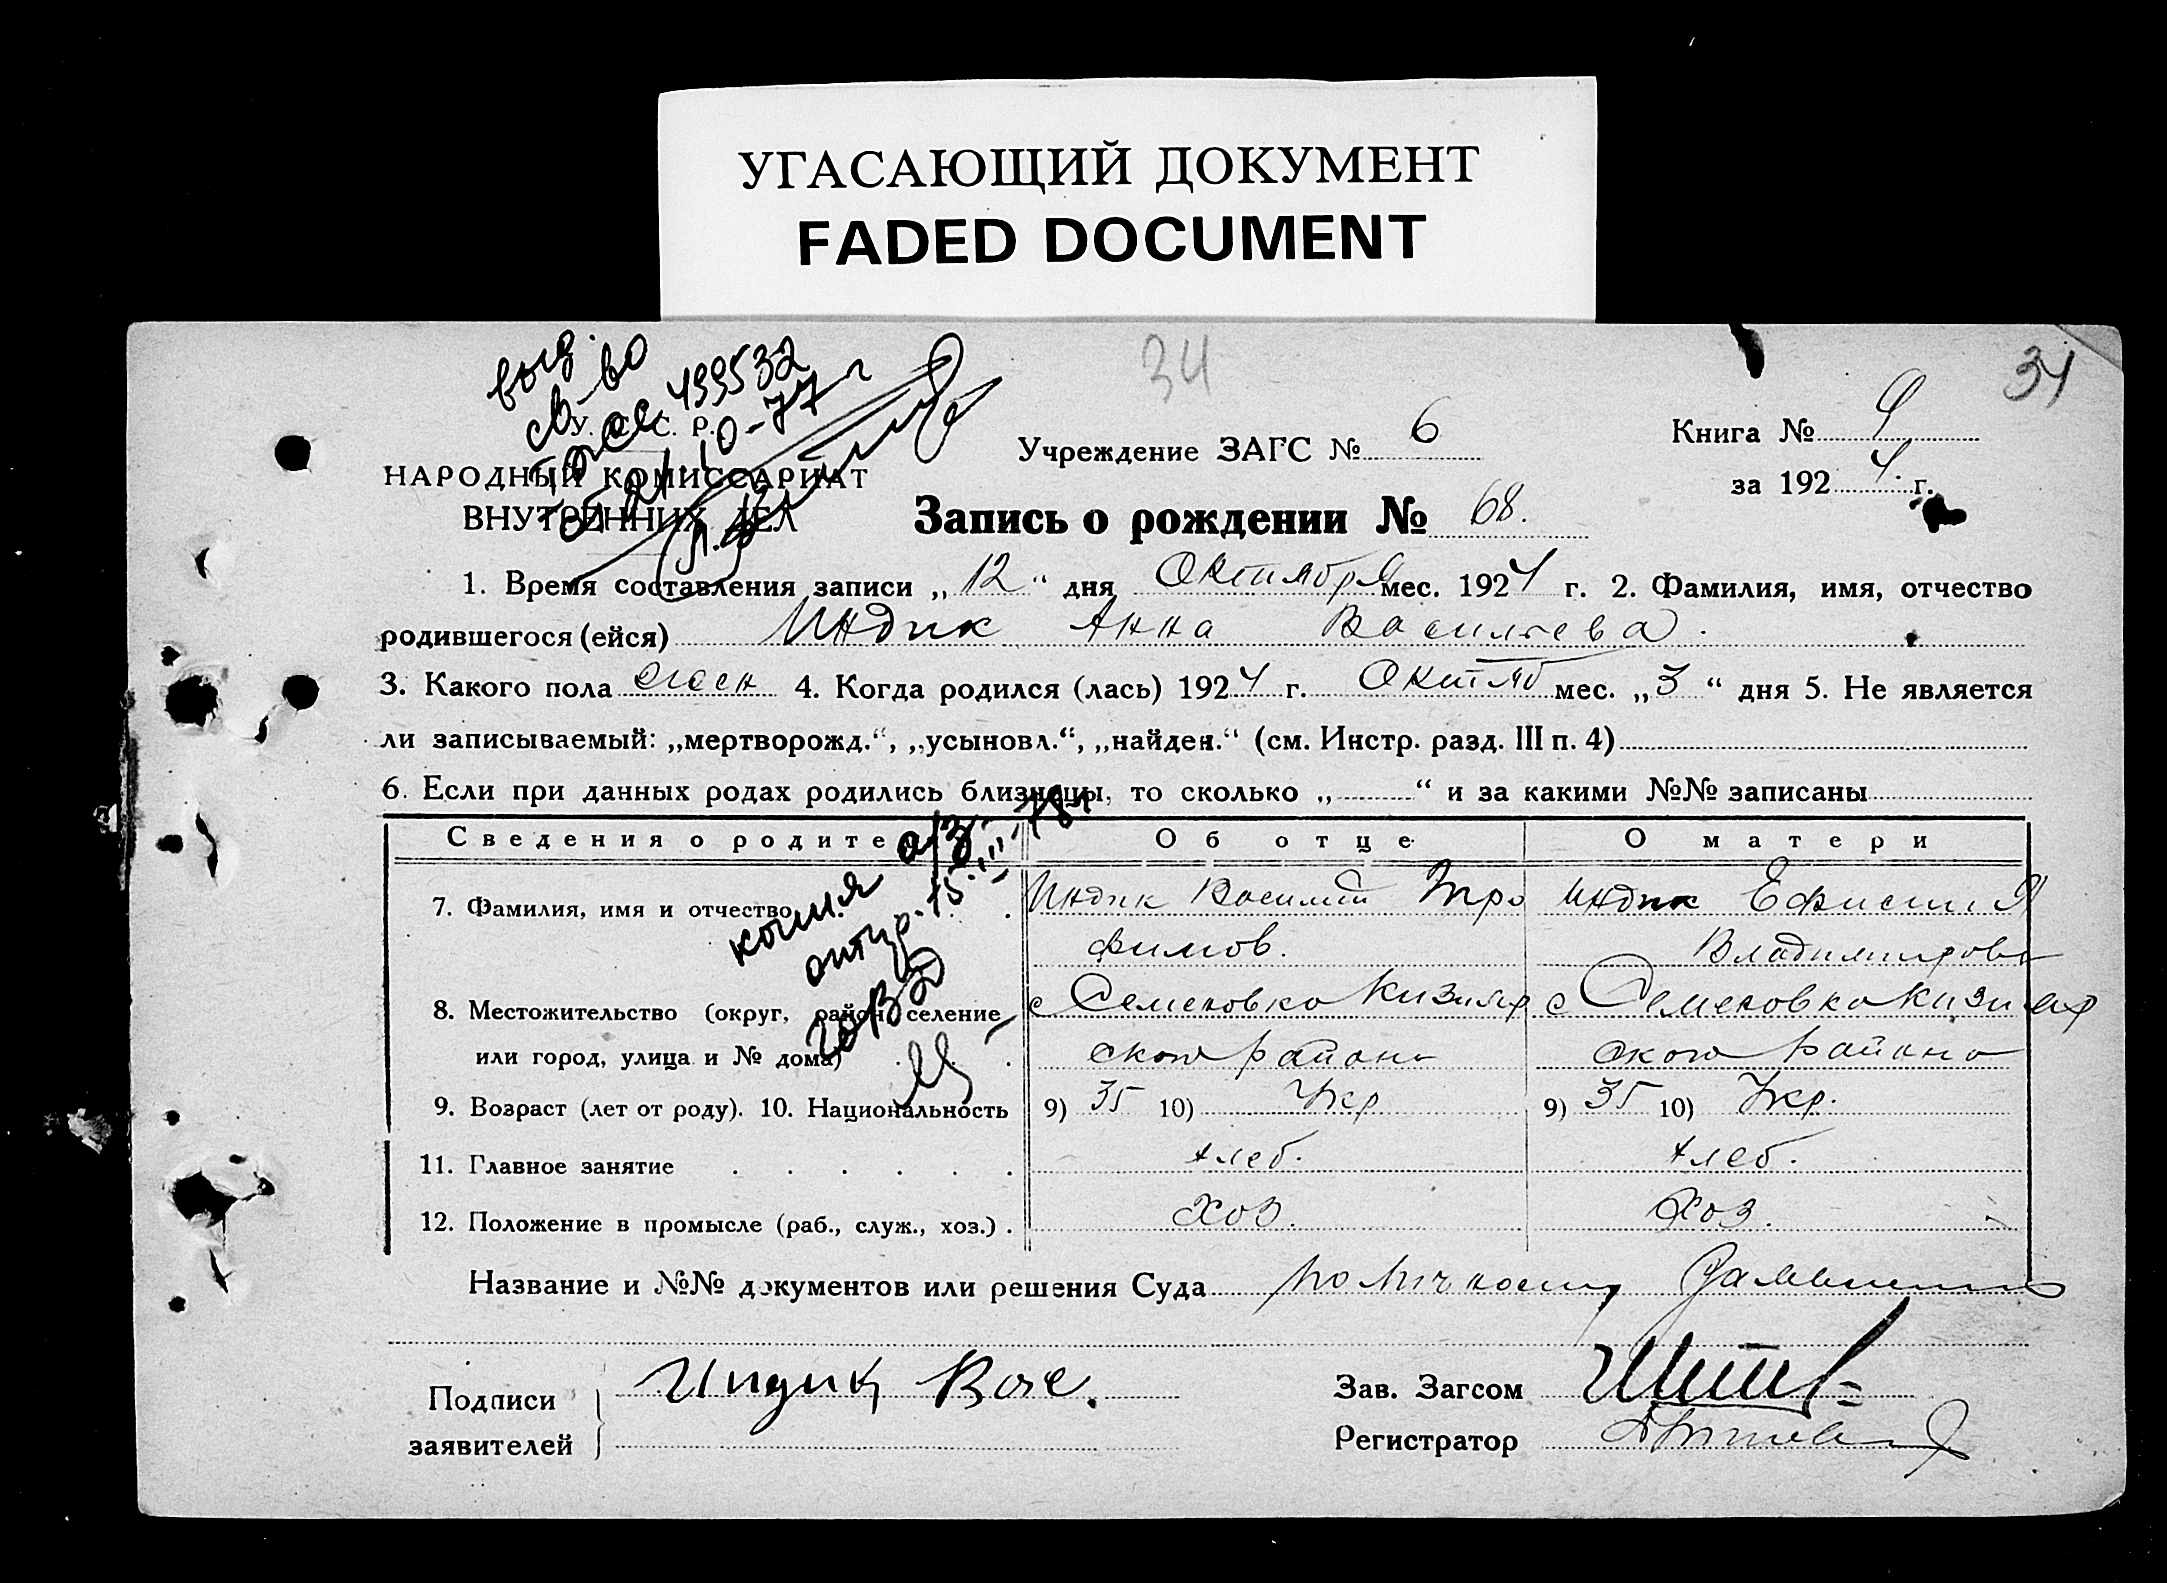 УГАСАЮЩИЙ ДОКУМЕНТ
FADED DOCUMENT
34
34
выд.
св-во
499532
10-77 г
У. С. С. Р.
НАРОДНЫЙ КОМИССАРИАТ
ВНУТРЕННИХ ДЕЛ
Учреждение ЗАГС № 6
Книга №
за 1924 г.
Запись о рождении № 68.
1. Время составления записи „12“ дня Октября мес. 1924 г. 2. Фамилия, имя, отчество
родившегося (ейся) Индик Анна Васильева.
3. Какого пола жен 4. Когда родился (лась) 1924 г. Октяб мес. „3“ дня 5. Не является
ли записываемый: „мертворожд.“, „усыновл.“, „найден.“ (см. Инстр. разд. III п. 4)
6. Если при данных родах родились близнецы, то сколько „ “ и за какими №№ записаны
Сведения о родите Об отце О матери
копия а/з
15.III-78 г
7. Фамилия, имя и отчество Индик Василий Тро Индик Ефимия
фимов. Владимирова
8. Местожительство (округ, район, селение с Семеновка Кизияр с Семеновка Кизияр
или город, улица и № дома) ского района ского района
9. Возраст (лет от роду). 10. Национальность 9) 35 10) Укр 9) 35 10) Укр.
11. Главное занятие хлеб. хлеб.
12. Положение в промысле (раб., служ., хоз.) хоз. хоз.
Название и №№ документов или решения Суда по личному
Подписи
заявителей
Индик Вас.
Зав. Загсом
Регистратор